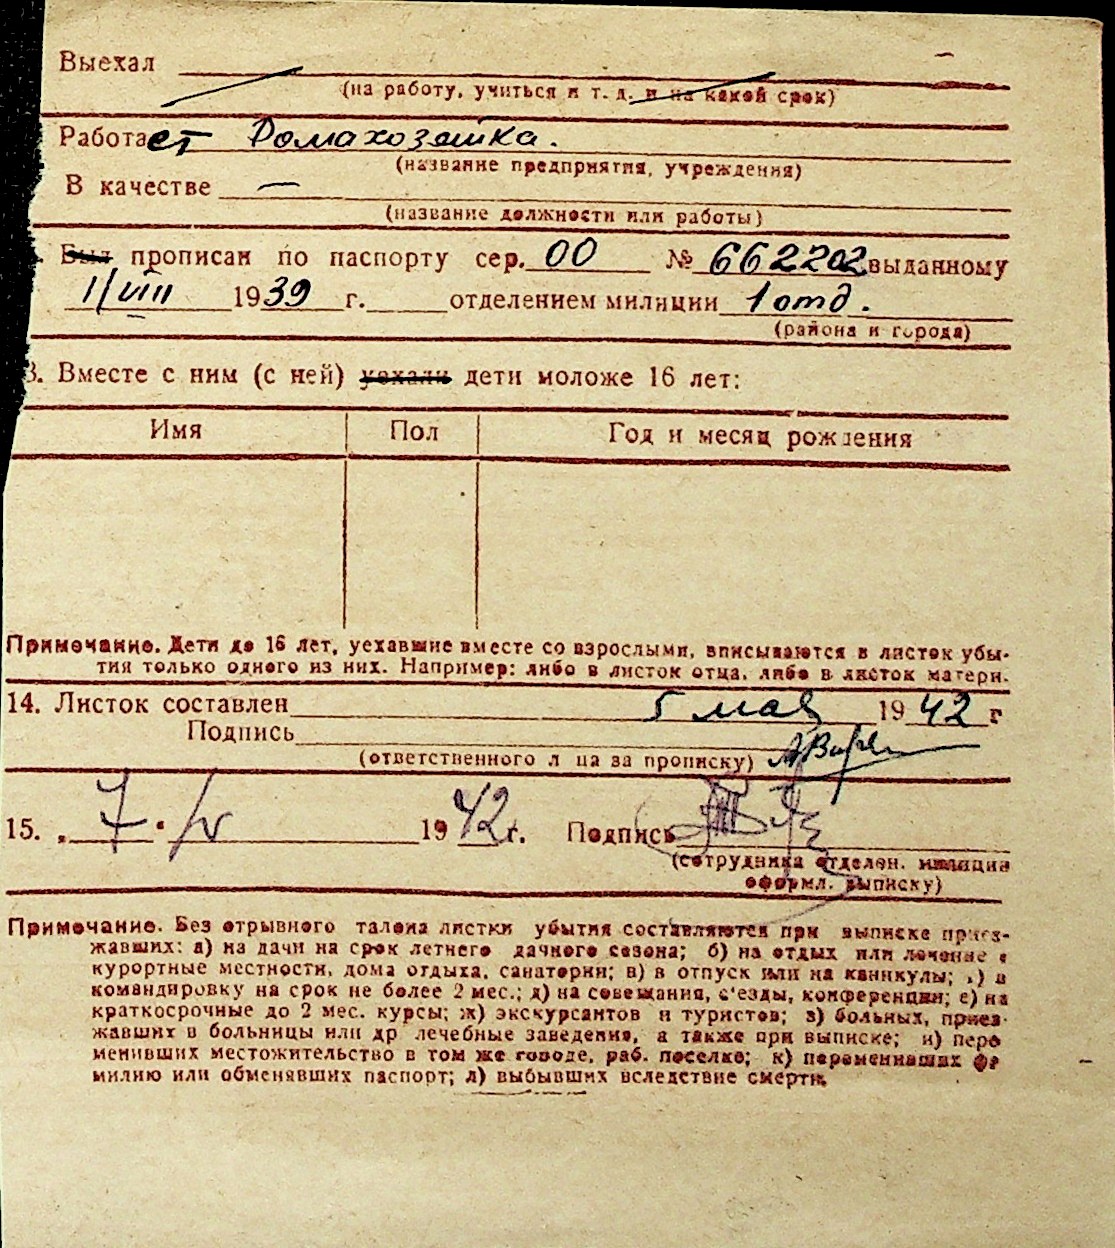 Выехал
(на работу, учиться и т. д. и на какой срок)
Работает Домахозяшка.
(название предприятия, учреждения)
В качестве —
(название должности или работы)
Был прописан по паспорту сер. 00 № 662202 выданному
11/VIII 1939 г. отделением милиции 1 отд.
(района и города)
3. Вместе с ним (с ней) уехали дети моложе 16 лет:
Имя Пол Год и месяц рождения
Примечание. Дети до 16 лет, уехавшие вместе со взрослыми, вписываются в листок убы-
тия только одного из них. Например: либо в листок отца, либо в листок матери.
14. Листок составлен 5 мая 1942 г
Подпись
(ответственного л ца за прописку)
15. „ 7 " IV 1942 г. Подпись
(сотрудника отделен. милиции
оформл. выписку)
Примечание. Без отрывного талона листки убытия составляются при выписке приез-
жавших: а) на дачи на срок летнего дачного сезона; б) на отдых или лечение в
курортные местности, дома отдыха, санатории; в) в отпуск или на каникулы; г) в
командировку на срок не более 2 мес.; д) на совещания, с'езды, конференции; е) на
краткосрочные до 2 мес. курсы; ж) экскурсантов и туристов; з) больных, приез-
жавших в больницы или др лечебные заведения, а также при выписке; и) пере
менивших местожительство в том же городе, раб. поселке; к) переменивших фа
милию или обменявших паспорт; л) выбывших вследствие смерти.